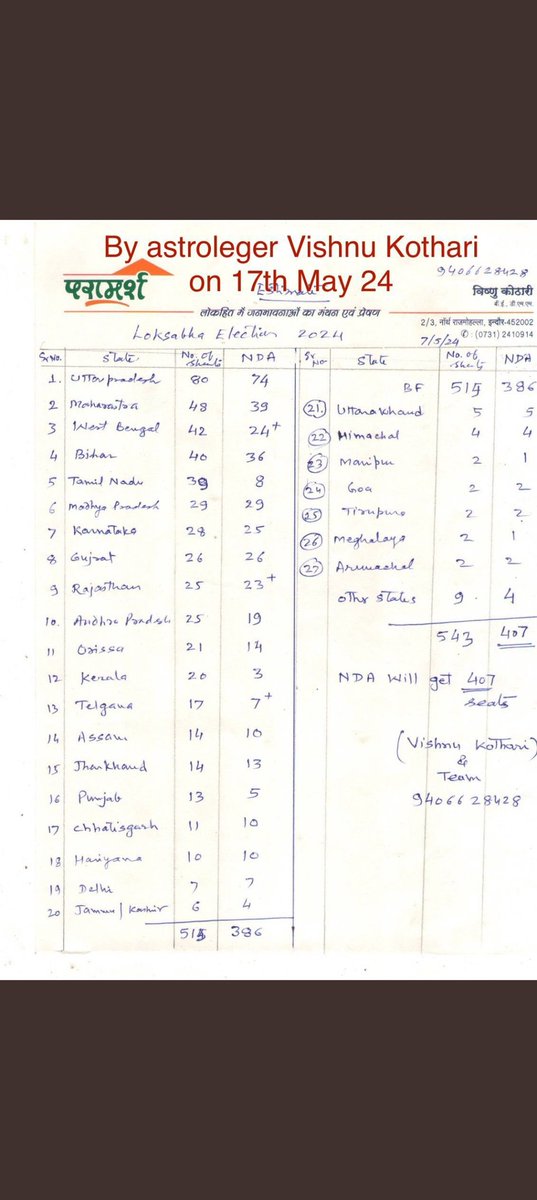 By astroleger Vishnu Kothari
on 17th May 24
9406628428
परामर्श
Estimate
विष्णु कोठारी
बी.ई., डी.एम.एम.
लोकहित में जनभावनाओं का मंथन एवं प्रेषण
2/3, नॉर्थ राजमोहल्ला, इन्दौर-452002
✆ : (0731) 2410914
7/5/24
Loksabha Election 2024
Sr No. State No. of Sheats NDA
1. Uttar pradesh 80 74
2 Maharastra 48 39
3 West Bengal 42 24+
4 Bihar 40 36
5 Tamil Nadu 39 8
6 Madhya Pradesh 29 29
7 Karnataka 28 25
8 Gujrat 26 26
9 Rajasthan 25 23+
10. Andhra Pradesh 25 19
11 Orissa 21 14
12 Kerala 20 3
13 Telgana 17 7+
14 Assam 14 10
15 Jharkhand 14 13
16 Punjab 13 5
17 Chhatisgarh 11 10
18 Hariyana 10 10
19 Delhi 7 7
20 Jammu/Kashir 6 4
515 386
Sr No State No. of Seats NDA
BF 515 386
21. Uttarakhand 5 5
22 Himachal 4 4
23 Manipur 2 1
24 Goa 2 2
25 Tirupura 2 2
26 Meghalaya 2 1
27 Arunachal 2 2
Othr States 9. 4
543 407
NDA Will get 407
seats
(Vishnu Kothari)
&
Team
9406628428